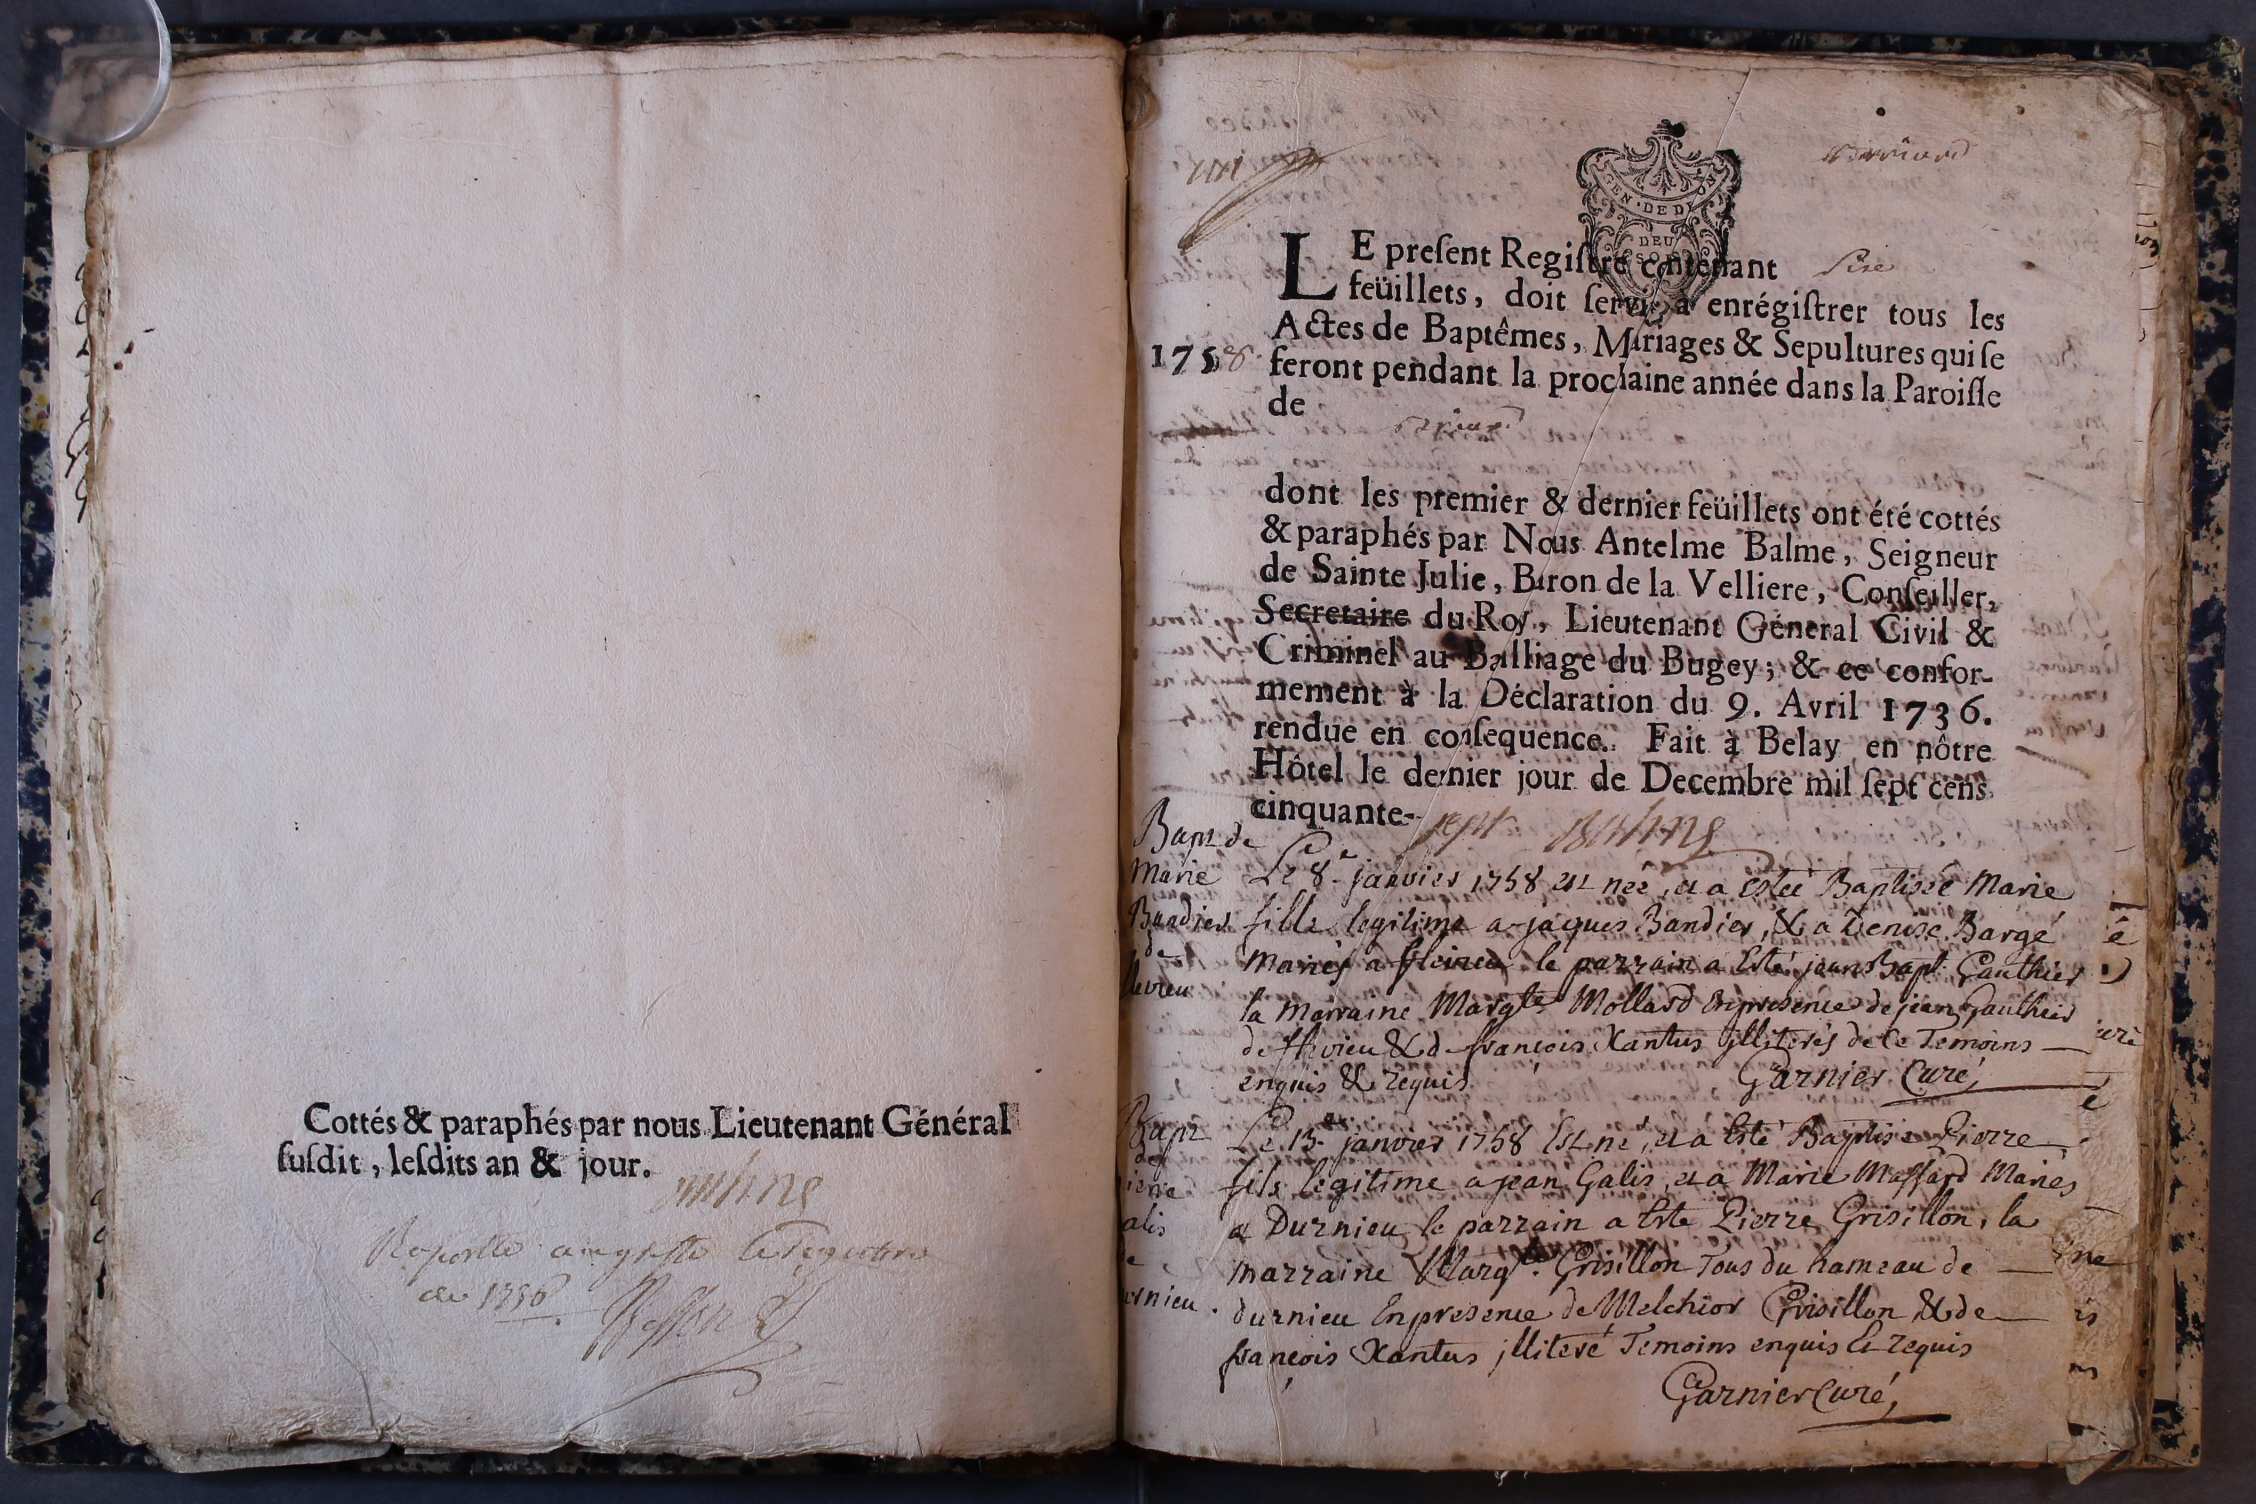 Cottés & paraphés par nous Lieutenant Général
ſuſdit, leſdits an & jour.
Balme
de 1756
GEN. DE DIJON
DEUX
SOLS
LE preſent Regiſtre contenant
feüillets, doit ſervir à enrégiſtrer tous les
Actes de Baptêmes, Mariages & Sepultures qui ſe
1758
feront pendant la prochaine année dans la Paroiſſe
de
dont les premier & dernier feüillets ont été cottés
& paraphés par Nous Antelme Balme, Seigneur
de Sainte Julie, Baron de la Velliere, Conſeiller,
Secretaire du Roy, Lieutenant Général Civil &
Criminel au Balliage du Bugey; & ce confor-
mement à la Déclaration du 9. Avril 1736.
rendue en conſequence. Fait à Belay en nôtre
Hôtel le dernier jour de Decembre mil ſept cens
cinquante- sept Balme
Bapt de
Marie
Bandier
de
Le 8e janvier 1758 est née, et a estée Baptisée Marie
fille legitime a jaques Bandier, & a Denise Bargé
Mariés a le parrain a Esté jean Bapt Gauthier
la Marraine Margte Mollard En presence de jean Gauthier
de & de francois Xantus illiterés de Ce Temoins
enquis & requis. Garnier Curé,
Bapt
de
ierre
alis
de
urnieu.
Le 13e janvier 1758 Est né, et a Esté Baptisé Pierre
fils legitime a jean Galis, et a Marie Maffard Mariés
a Durnieu le parrain a Esté Pierre Grisillon, la
marraine Margte Grisillon Tous du hameau de
durnieu En presence de Melchior Grisillon & de
françois Xantus illiteré Temoins enquis Et requis
Garnier Curé,